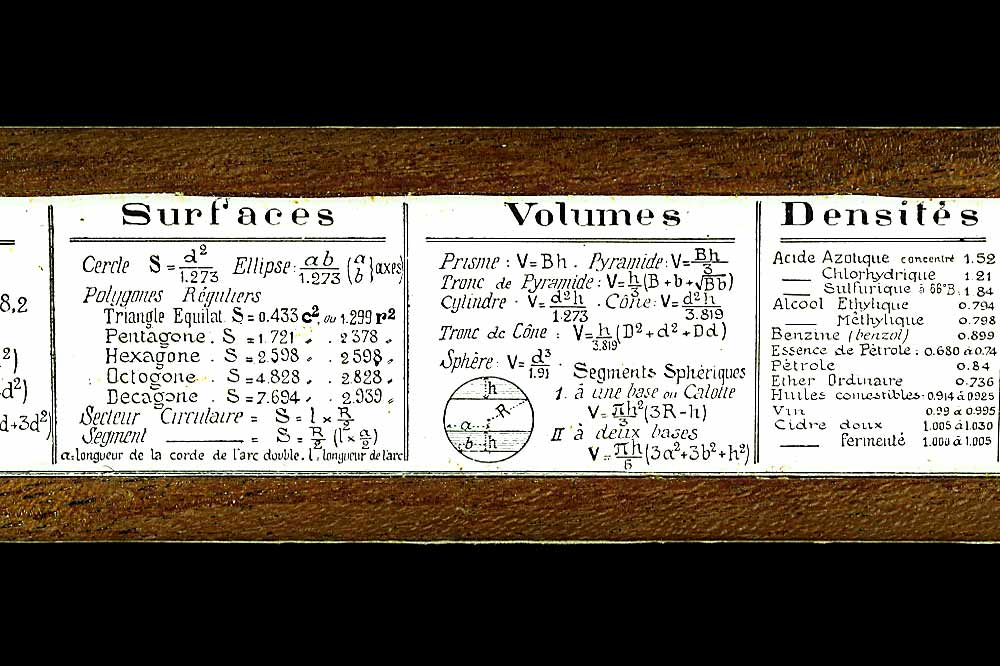 8,2
²)
d²)
d+3d²)
Surfaces
Cercle S = d²/1.273 Ellipse: ab/1.273 (a b} axes)
Polygones Réguliers
Triangle Equilat. S = 0.433 c², ou 1.299 r²
Pentagone . S = 1.721 „ . 2.378 „
Hexagone . S = 2.598 „ . 2.598 „
Octogone . S = 4.828 „ . 2.828 „
Decagone . S = 7.694 „ . 2.939 „
Secteur Circulaire = S = l × R/2
Segment ——— = S = R/2 (l × a/2)
a: longueur de la corde de l'arc double. l. longueur de l'arc
Volumes
Prisme : V = Bh . Pyramide: V = Bh/3
Tronc de Pyramide : V = h/3 (B + b + √Bb)
Cylindre . V = d²h/1.273 . Cône: V = d²h/3.819
Tronc de Cône : V = h/3.819 (D² + d² + Dd)
Sphère: V = d³/1.91 . Segments Sphériques
h
R
a
b h
I. à une base ou Calotte
V = πh²/3 (3R - h)
II à deux bases
V = πh/6 (3a² + 3b² + h²)
Densités
Acide Azotique concentré 1.52
—— Chlorhydrique 1.21
—— Sulfurique à 66°B. 1.84
Alcool Ethylique 0.794
—— Méthylique 0.798
Benzine (benzol) 0.899
Essence de Pétrole : 0.680 à 0.74
Pétrole 0.84
Ether Ordinaire 0.736
Huiles comestibles. 0.914 à 0.925
Vin 0.99 à 0.995
Cidre doux 1.005 à 1.030
—— fermenté 1.000 à 1.005